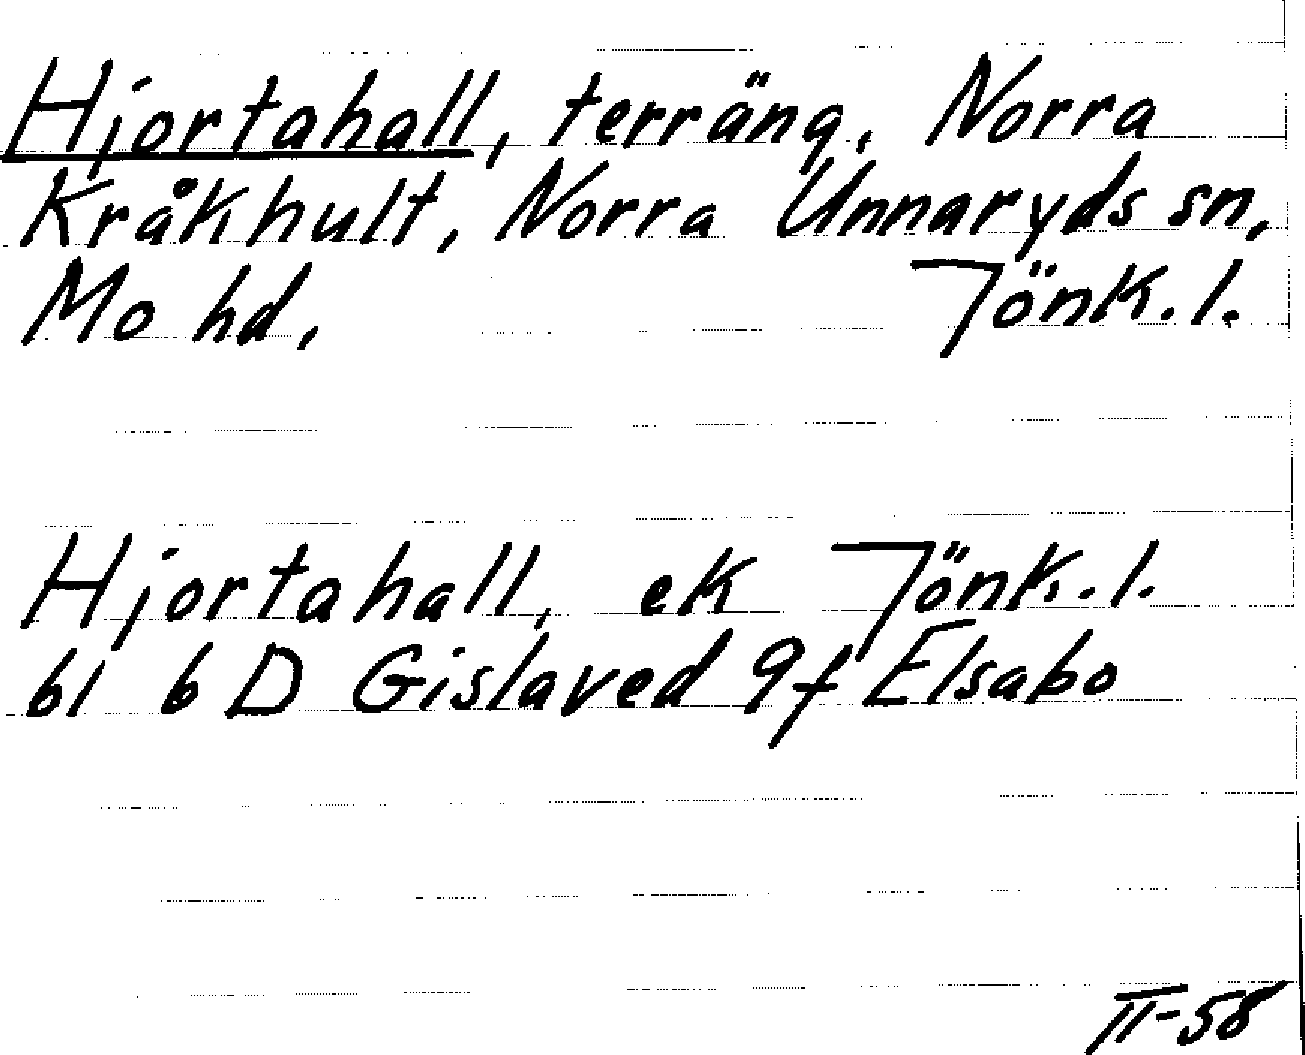 Hjortahall, terräng, Norra
Kråkhult, Norra Unnaryds sn,
Mo hd, Jönk.l.
Hjortahall, ek Jönk.l.
bl 6 D Gislaved 9f Elsabo
II-58